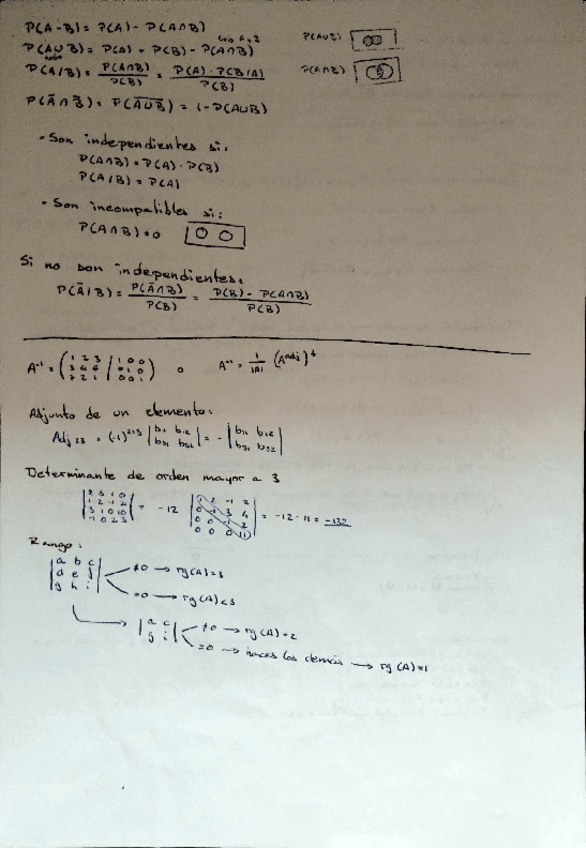 P(A-B) = P(A) - P(A∩B)
P(A∪B) = P(A) + P(B) - P(A∩B)
P(A∪B)
P(A/B) = P(A∩B)/P(B) = P(A)·P(B/A)/P(B)
P(A∩B)
P(Ā∩B̄) = P(A∪B)‾ = 1-P(A∪B)
· Son independientes si:
P(A∩B) = P(A)·P(B)
P(A/B) = P(A)
· Son incompatibles si:
P(A∩B) = 0
Si no son independientes:
P(Ā/B) = P(Ā∩B)/P(B) = P(B) - P(A∩B)/P(B)
A⁻¹ = ( 1 2 3 | 1 0 0
3 4 6 | 0 1 0
7 2 1 | 0 0 1 ) o A⁻¹ = 1/|A| (A^adj)^t
Adjunto de un elemento:
Adj 23 = (-1)²⁺³ |b11 b12| = - |b11 b12|
|b31 b32| |b31 b32|
Determinante de orden mayor a 3
|2 3 1 0| |1 2 -1 2|
|1 2 -1 2| = -12 |0 3 4| = -12·11 = -132
|3 1 0 10| |0 0 -1 2|
|-1 0 2 3| |0 0 0 11|
Rango:
|a b c| ≠0 → rg(A)=3
|d e f|
|g h i| =0 → rg(A)<3
|a c| ≠0 → rg(A)=2
|g i| =0 → haces los demás → rg(A)=1